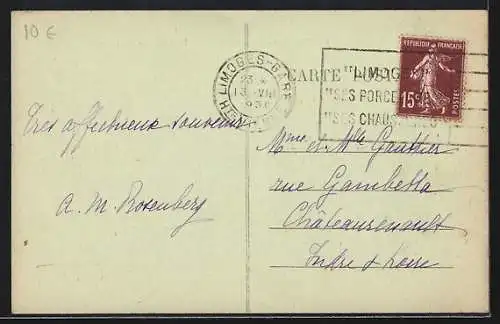 10 €
LIMOGES-GARE
13 - VIII
CARTE POST
"LIMOG
"SES PORCE
"SES CHAUS
REPUBLIQUE FRANÇAISE
15c
POSTES
Très affectueux souvenir
A. M. Rosenberg
Mme et Mlle Gauthier
rue Gambetta
Châteaurenault
Indre & Loire